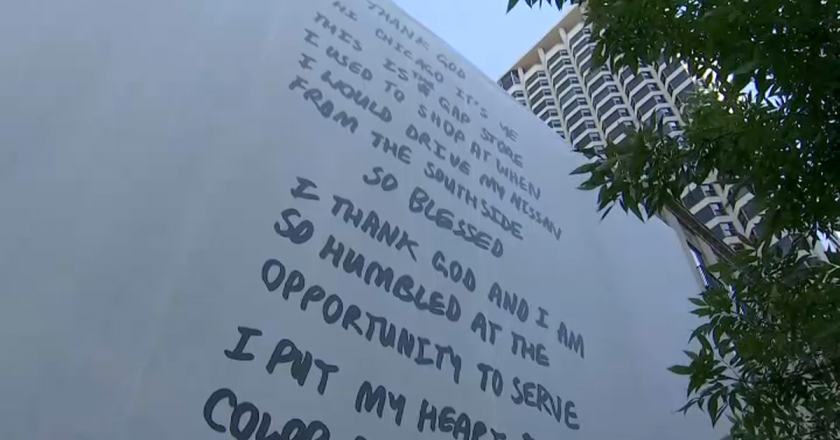 THANK GOD
HI CHICAGO IT'S YE
THIS IS THE GAP STORE
I USED TO SHOP AT WHEN
I WOULD DRIVE MY NISSAN
FROM THE SOUTHSIDE
SO BLESSED
I THANK GOD AND I AM
SO HUMBLED AT THE
OPPORTUNITY TO SERVE
I PUT MY HEART
COLOR